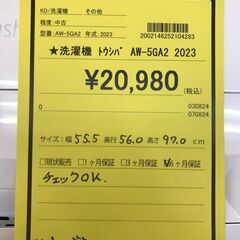 KD/洗濯機 その他
程度:中古
型番: AW-5GA2 年式: 2023
2002146252104283
★洗濯機 ﾄｳｼﾊﾞ AW-5GA2 2023
¥20,980
(税込)
0
030824
070824
サイズ:幅 55.5 奥行 56.0 高さ 97.0 cm
□現状販売 □1ヶ月保証 □3ヶ月保証 ☑6ヶ月保証
チェックOK.